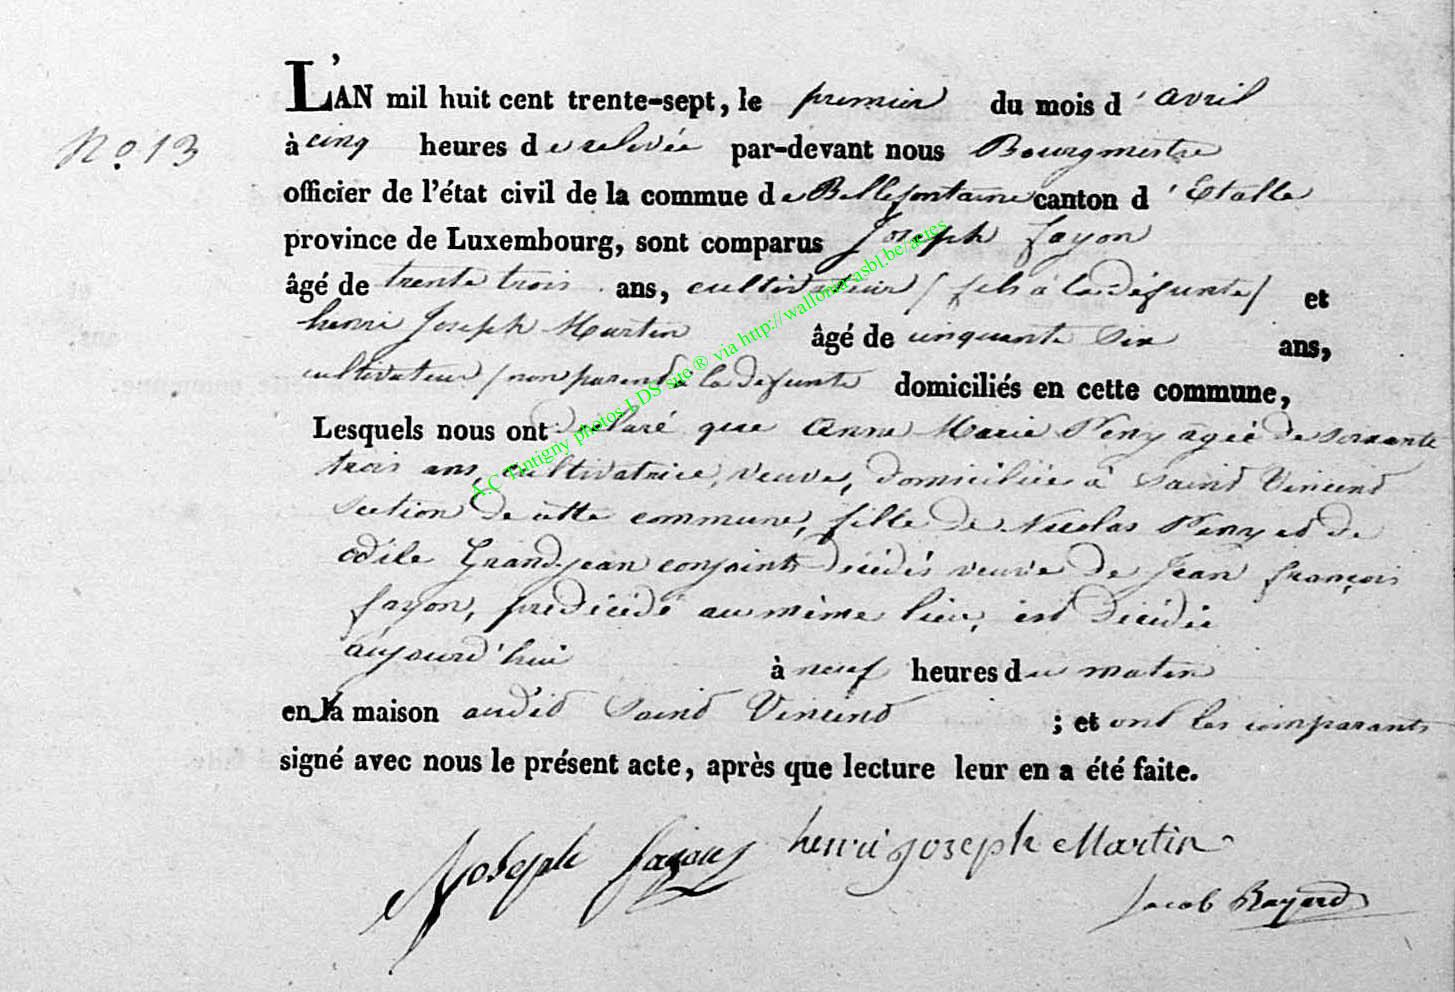 L'AN mil huit cent trente-sept, le premier du mois d'avril
No. 13
à cinq heures de relevée par-devant nous Bourgmestre
officier de l'état civil de la commue de Bellefontaine canton d'Etalle
province de Luxembourg, sont comparus Joseph fayon
âgé de trente trois ans, cultivateur / fils à la défunte / et
henri Joseph Martin âgé de cinquante six ans,
cultivateur / non parent à la defunte domiciliés en cette commune,
Lesquels nous ont declaré que Anne Marie Peny agée de soixante
trois ans, cultivatrice, veuve, domiciliée à Saint Vincent
section de cette commune, fille de Nicolas Peny et de
odile Grandjean conjoints decédés veuve de Jean françois
fayon, prédécédé au même lieu, est decédée
aujourd'hui à neuf heures du matin
en la maison audit Saint Vincent ; et ont les comparants
signé avec nous le présent acte, après que lecture leur en a été faite.
Joseph fayon henri Joseph Martin
Jacob Bayard
A.C Tintigny photos LDS site ® via http://wallonia-asbl.be/actes